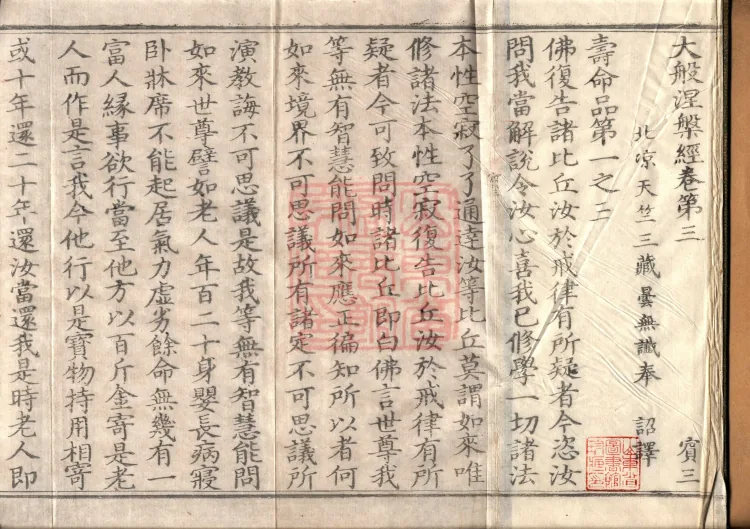 大般涅槃經卷第三 賓三
北涼天竺三藏曇無讖奉 詔譯
壽命品第一之三
佛復告諸比丘汝於戒律有所疑者今恣汝
問我當解說令汝心喜我已修學一切諸法
本性空寂了了通達汝等比丘莫謂如來唯
修諸法本性空寂復告比丘汝於戒律有所
疑者今可致問時諸比丘即白佛言世尊我
等無有智慧能問如來應正徧知所以者何
如來境界不可思議所有諸定不可思議所
演教誨不可思議是故我等無有智慧能問
如來世尊譬如老人年百二十身嬰長病寢
臥牀席不能起居氣力虛劣餘命無幾有一
富人緣事欲行當至他方以百斤金寄是老
人而作是言我今他行以是寶物持用相寄
或十年還二十年還汝當還我是時老人即